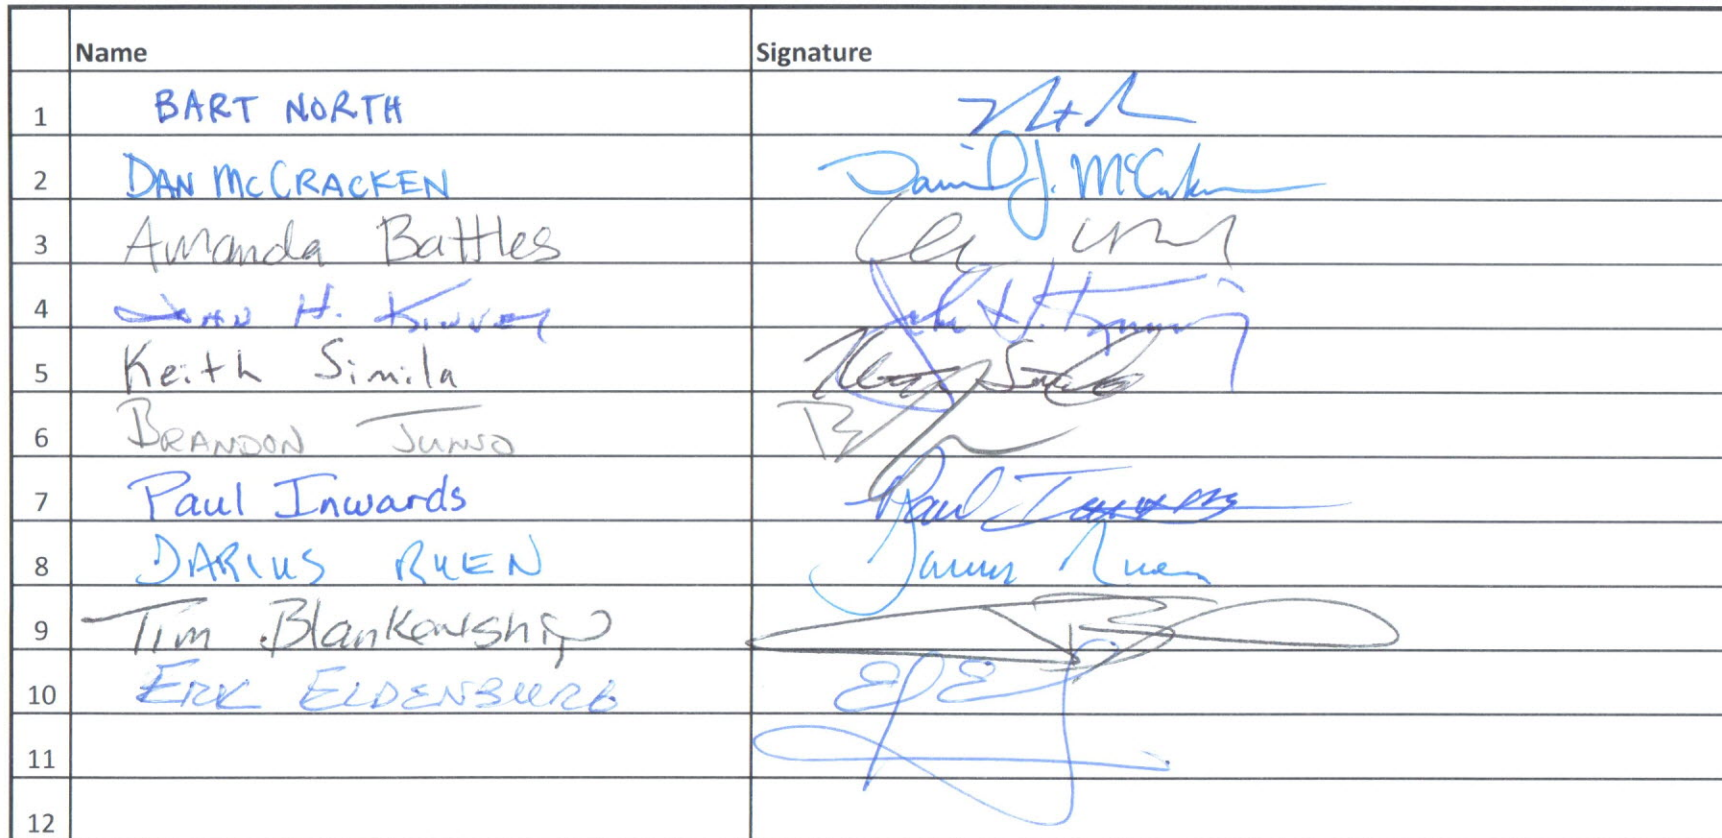 Name Signature
1 BART NORTH
2 DAN McCRACKEN Daniel J. McCracken
3 Amanda Battles
4 H. Kinney John H. Kinney
5 Keith Simila
6 BRANDON JUNSO
7 Paul Inwards Paul Inwards
8 DARIUS RUEN Darius Ruen
9 Tim Blankenship
10 ERIK ELDENBURG
11
12